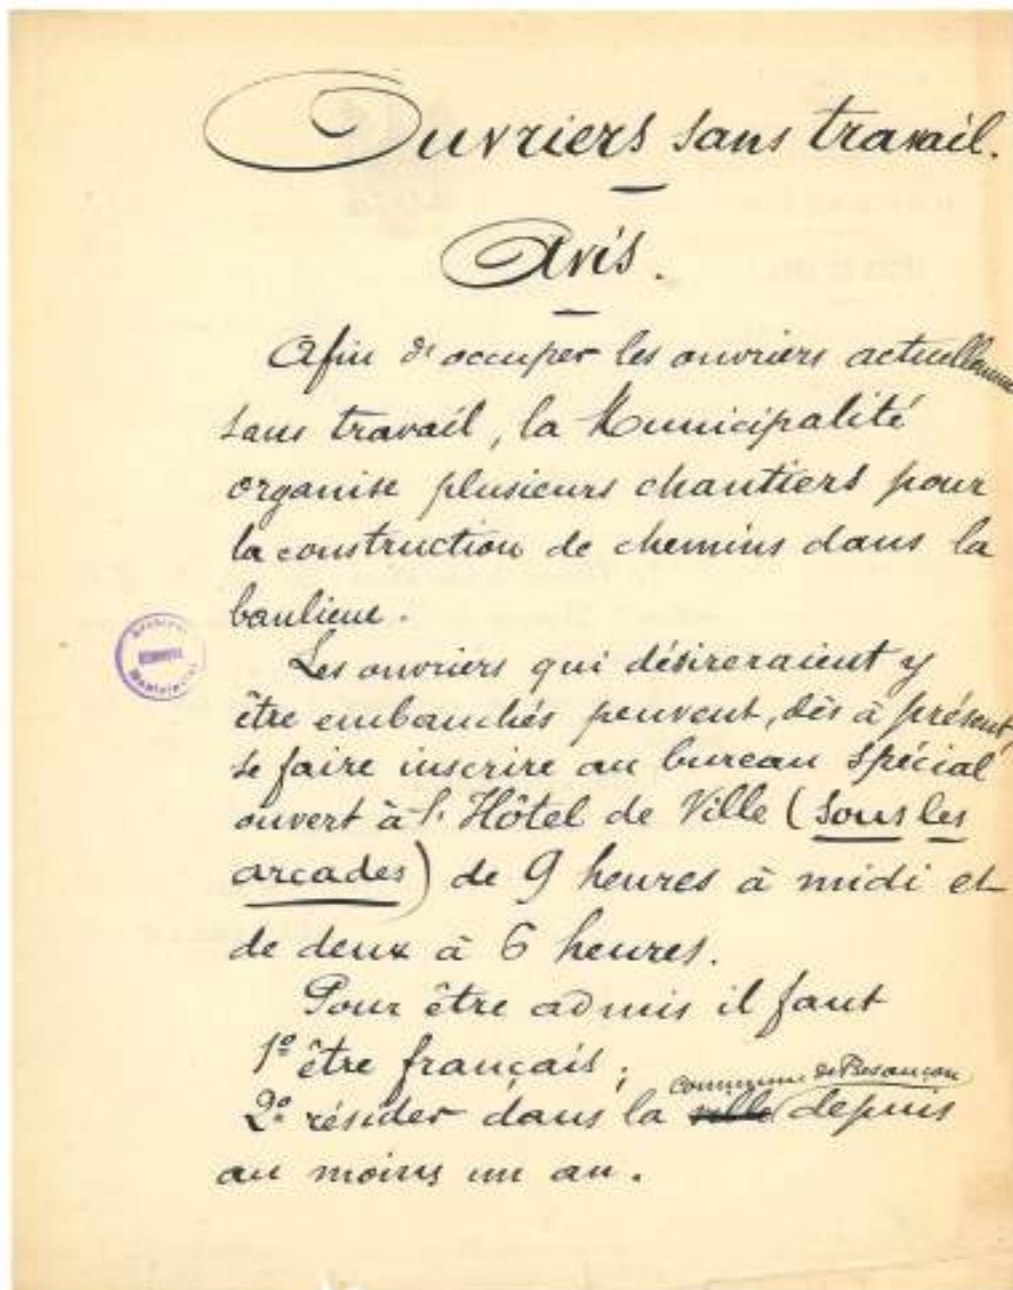 Ouvriers sans travail.
Avis.
Afin d'occuper les ouvriers actuellement
sans travail, la Municipalité
organise plusieurs chantiers pour
la construction de chemins dans la
banlieue.
Les ouvriers qui désireraient y
être embauchés peuvent, dès à présent,
se faire inscrire au bureau spécial
ouvert à l'Hôtel de Ville (sous les
arcades) de 9 heures à midi et
de deux à 6 heures.
Pour être admis il faut
1º être français ;
commune de Besançon
2º résider dans la ville depuis
au moins un an.
Archives
Municipales